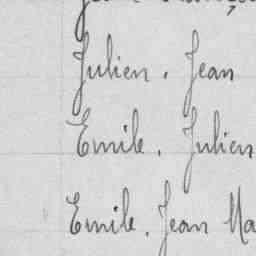 Julien. Jean
Emile. Julien
Emile. Jean Ma